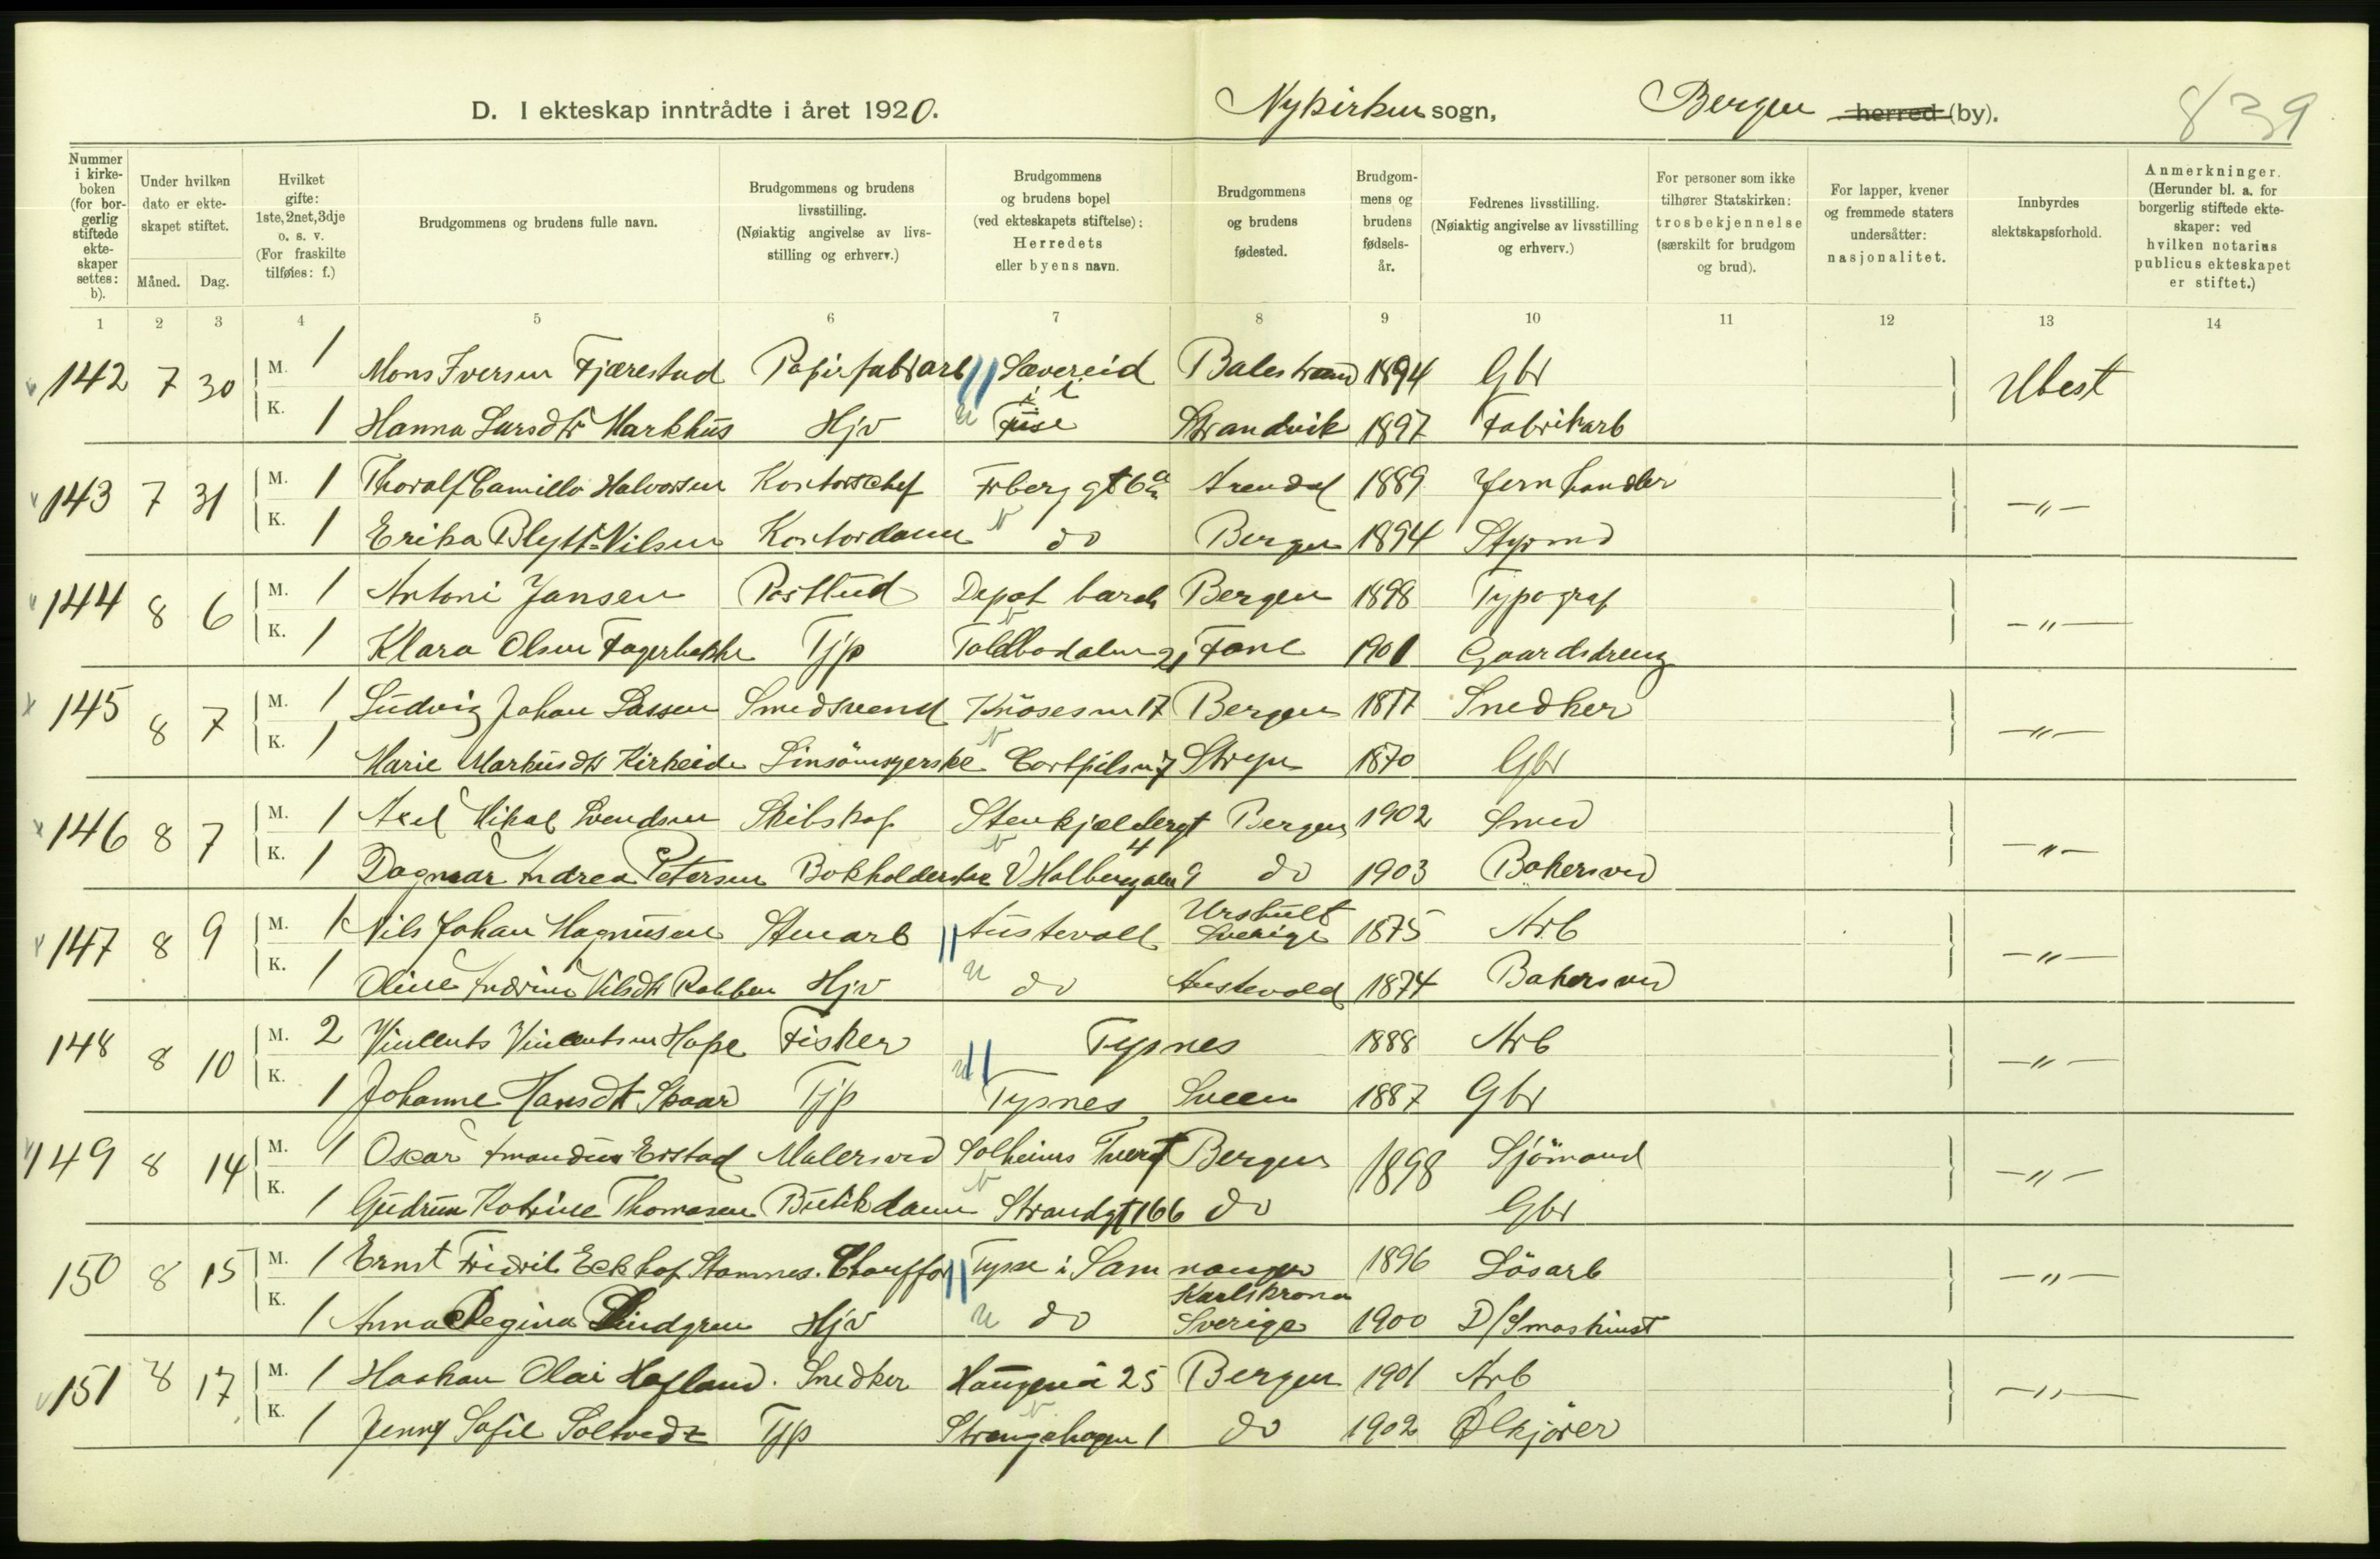 D. I ekteskap inntrådte i året 1920. Nykirken sogn, Bergen herred (by). 839
Nummer i kirkeboken (for borgerlig stiftede ekteskaper settes: b).
Under hvilken dato er ekteskapet stiftet. Måned. Dag.
Hvilket gifte: 1ste, 2net, 3dje o. s. v. (For fraskilte tilføies: f.)
Brudgommens og brudens fulle navn.
Brudgommens og brudens livsstilling. (Nøiaktig angivelse av livsstilling og erhverv.)
Brudgommens og brudens bopel (ved ekteskapets stiftelse): Herredets eller byens navn.
Brudgommens og brudens fødested.
Brudgommens og brudens fødselsår.
Fedrenes livsstilling. (Nøiaktig angivelse av livsstilling og erhverv.)
For personer som ikke tilhører Statskirken: trosbekjennelse (særskilt for brudgom og brud).
For lapper, kvener og fremmede staters undersåtter: nasjonalitet.
Innbyrdes slektskapsforhold.
Anmerkninger. (Herunder bl. a. for borgerlig stiftede ekteskaper: ved hvilken notarius publicus ekteskapet er stiftet.)
1 2 3 4 5 6 7 8 9 10 11 12 13 14
142 7 30 M. 1 Mons Iversen Fjærestad Papirfabrarb Sævereid Balestrand 1894 Gbr Ubest
K. 1 Hanna Larsdtr Markhus Hjv i Fuse Strandvik 1897 Fabrikarb
143 7 31 M. 1 Thoralf Camillo Halvorsen Kontorschef Frberg gt 6a Arendal 1889 Jernhandler —"—
K. 1 Erika Blytt-Nilsen Kontordame do Bergen 1894 Styrmd
144 8 6 M. 1 Antoni Jansen Postbud Depot barak Bergen 1898 Typograf —"—
K. 1 Klara Olsen Fagerbakke Tjp Toldbodalm 21 Fane 1901 Gaardsdreng
145 8 7 M. 1 Ludvig Johan Lassen Smedsvend Knösesm 17 Bergen 1877 Snedker —"—
K. 1 Marie Markusdtr Kirkeide Linsömgerske Cortpilsm 7 Stryn 1870 Gbr
146 8 7 M. 1 Axel Mikal Svendsen Skibskok Stenkjeldergt 4 Bergen 1902 Smed —"—
K. 1 Dagmar Andrea Petersen Bokholderske V Holbergalm 9 do 1903 Bakersvd
147 8 9 M. 1 Nils Johan Magnusen Stenarb Austevoll Urshult Sverige 1875 Arb —"—
K. 1 Oline Andrine Nilsdtr Rabben Hjv do Austevold 1874 Bakersvd
148 8 10 M. 2 Vincents Vincentsen Hope Fisker Tysnes 1888 Arb —"—
K. 1 Johanne Hansdtr Skaar Tjp Tysnes Sveen 1887 Gbr
149 8 14 M. 1 Oscar Amandus Erstad Malersvd Solheims Tvergt Bergen 1898 Sjömand —"—
K. 1 Gudrun Katrine Thomasen Butikdame Strandgt 166 do Gbr
150 8 15 M. 1 Ernst Fridrik Eckhof Stamnes. Chauffør Tysse i Samnanger 1896 Lösarb —"—
K. 1 Anna Regina Lindgren Hjv do Karlskrona Sverige 1900 D/Smaskinist
151 8 17 M. 1 Haakon Olai Hafland. Snedker Haugenå 25 Bergen 1901 Arb —"—
K. 1 Jenny Sofie Soltvedt Tjp Strangehagen 1 do 1902 Ølkjører